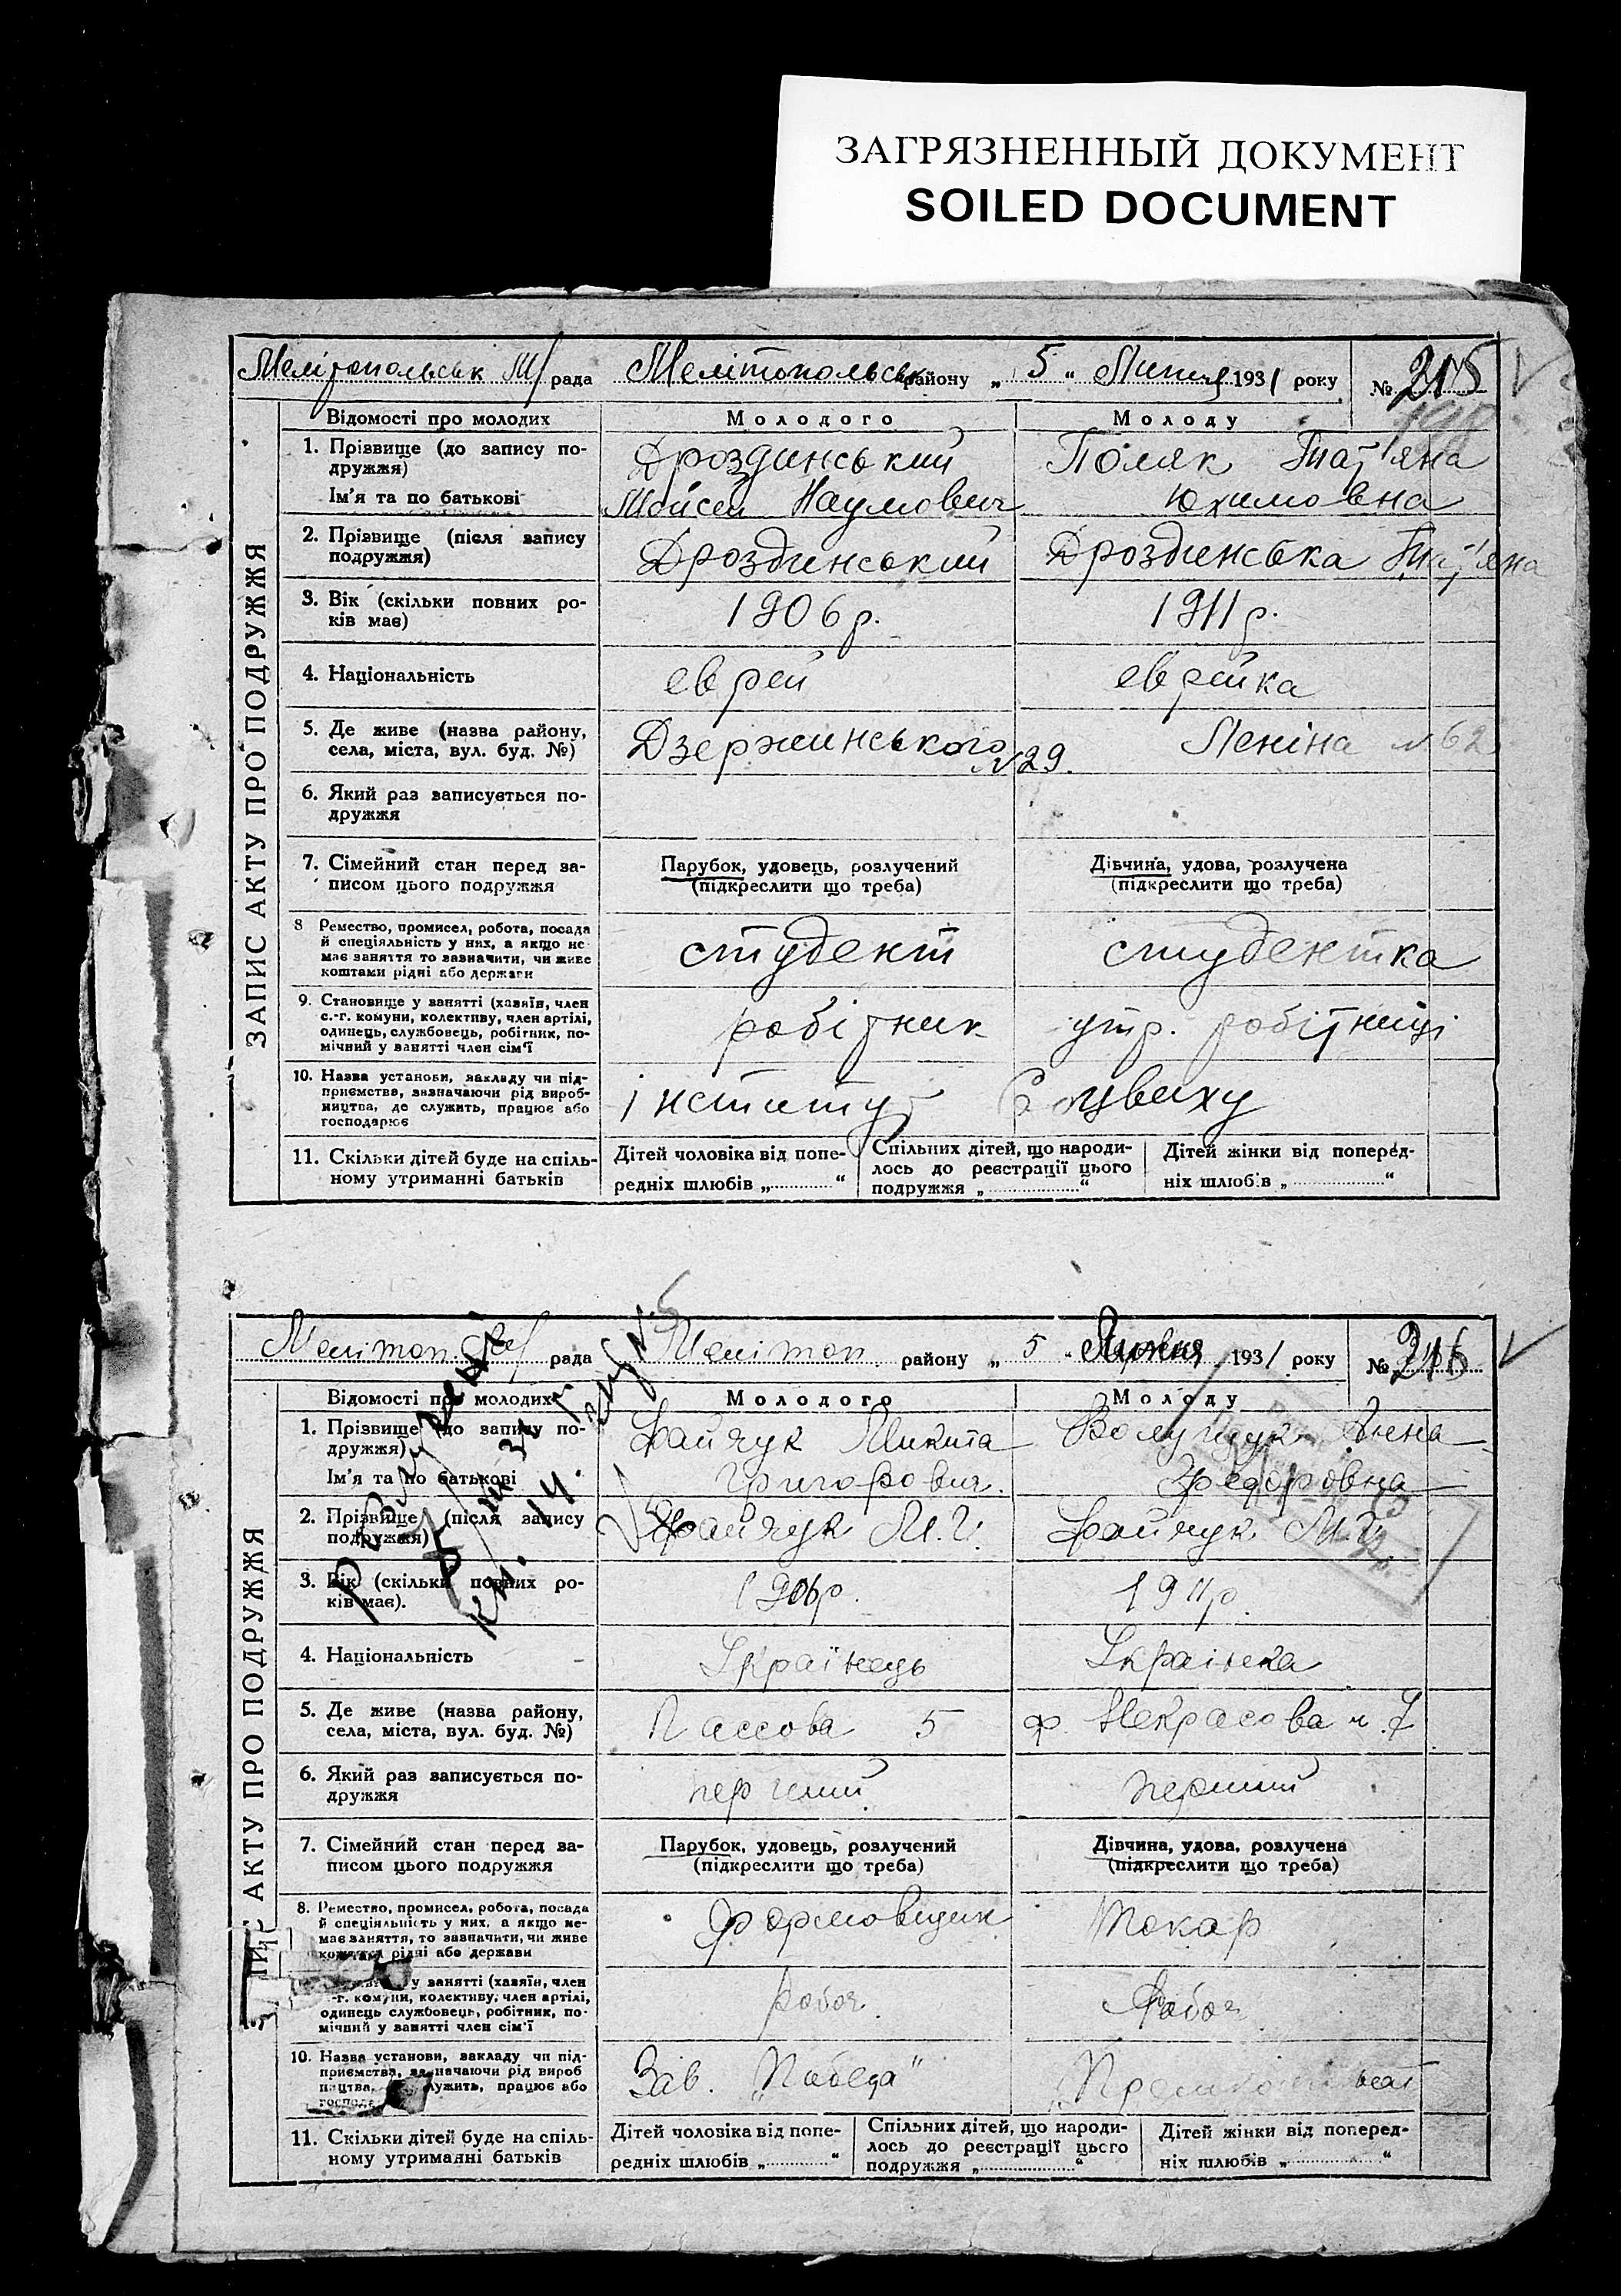 ЗАГРЯЗНЕННЫЙ ДОКУМЕНТ
SOILED DOCUMENT
Мелітопольськ М/ рада Мелітопольськ району „ 5 " Липня 1931 року № 215
ЗАПИС АКТУ ПРО ПОДРУЖЖЯ
Відомості про молодих Молодого Молоду
1. Прізвище (до запису по-
дружжя) Дроздинський Поляк Тат'яна
Ім'я та по батькові Мойсей Наумович Юхимовна
2. Прізвище (після запису
подружжя) Дроздинський Дроздинська Тат'яна
3. Вік (скільки повних ро-
ків має) 1906 р. 1911 р.
4. Національність еврей еврейка
5. Де живе (назва району,
села, міста, вул. буд. №) Дзержинського №29. Леніна №62
6. Який раз записується по-
дружжя
7. Сімейний стан перед за- Парубок, удовець, розлучений Дівчина, удова, розлучена
писом цього подружжя (підкреслити що треба) (підкреслити що треба)
8 Ремество, промисел, робота, посада
й спеціяльність у них, а якщо не
має заняття то зазначити, чи живе студент студентка
коштами рідні або держави
9. Становище у занятті (хазяїн, член
с.-г. комуни, колективу, член артілі,
одинець, службовець, робітник, по- робітник утр. робітниці
мічний у занятті член сім'ї
10. Назва установи, закладу чи під-
приємства, зазначаючи рід вироб-
ництва, де служить, працює або інститут Соцвиху
господарює
11. Скільки дітей буде на спіль- Дітей чоловіка від попе- Спільних дітей, що народи- Дітей жінки від поперед-
ному утриманні батьків редніх шлюбів „ “ лось до реєстрації цього ніх шлюбів „ “
подружжя „ “
Мелітоп. рада Мелітоп. району „ 5 " 1931 року № 216
АКТУ ПРО ПОДРУЖЖЯ
Відомості про молодих Молодого Молоду
1. Прізвище (до запису по-
дружжя) Файчук Микита Анна
Ім'я та по батькові Григорович. Федоровна
2. Прізвище (після запису
подружжя) Файчук М.Г. Файчук М.Г.
3. Вік (скільки повних ро-
ків має). 1906р. 1911р.
4. Національність Українець Українка
5. Де живе (назва району,
села, міста, вул. буд. №) 5 Некрасова 7
6. Який раз записується по-
дружжя перший перший
7. Сімейний стан перед за- Парубок, удовець, розлучений Дівчина, удова, розлучена
писом цього подружжя (підкреслити що треба) (підкреслити що треба)
8. Ремество, промисел, робота, посада
й спеціяльність у них, а якщо не-
має заняття, то зазначити, чи живе формовщик Токар
рідні або держави
у занятті (хазяїн, член
комуни, колективу, член артілі,
одинець службовець, робітник, по- робоч. Робоч.
мічний у занятті член сім'ї
10. Назва установи, закладу чи під-
приємства, значаючи рід вироб
ництва, служить, працює або Зав. „Победа"
11. Скільки дітей буде на спіль- Дітей чоловіка від попе- Спільних дітей, що народи- Дітей жінки від поперед-
ному утриманні батьків редніх шлюбів „ “ лось до реєстрації цього ніх шлюбів „ “
подружжя „ “